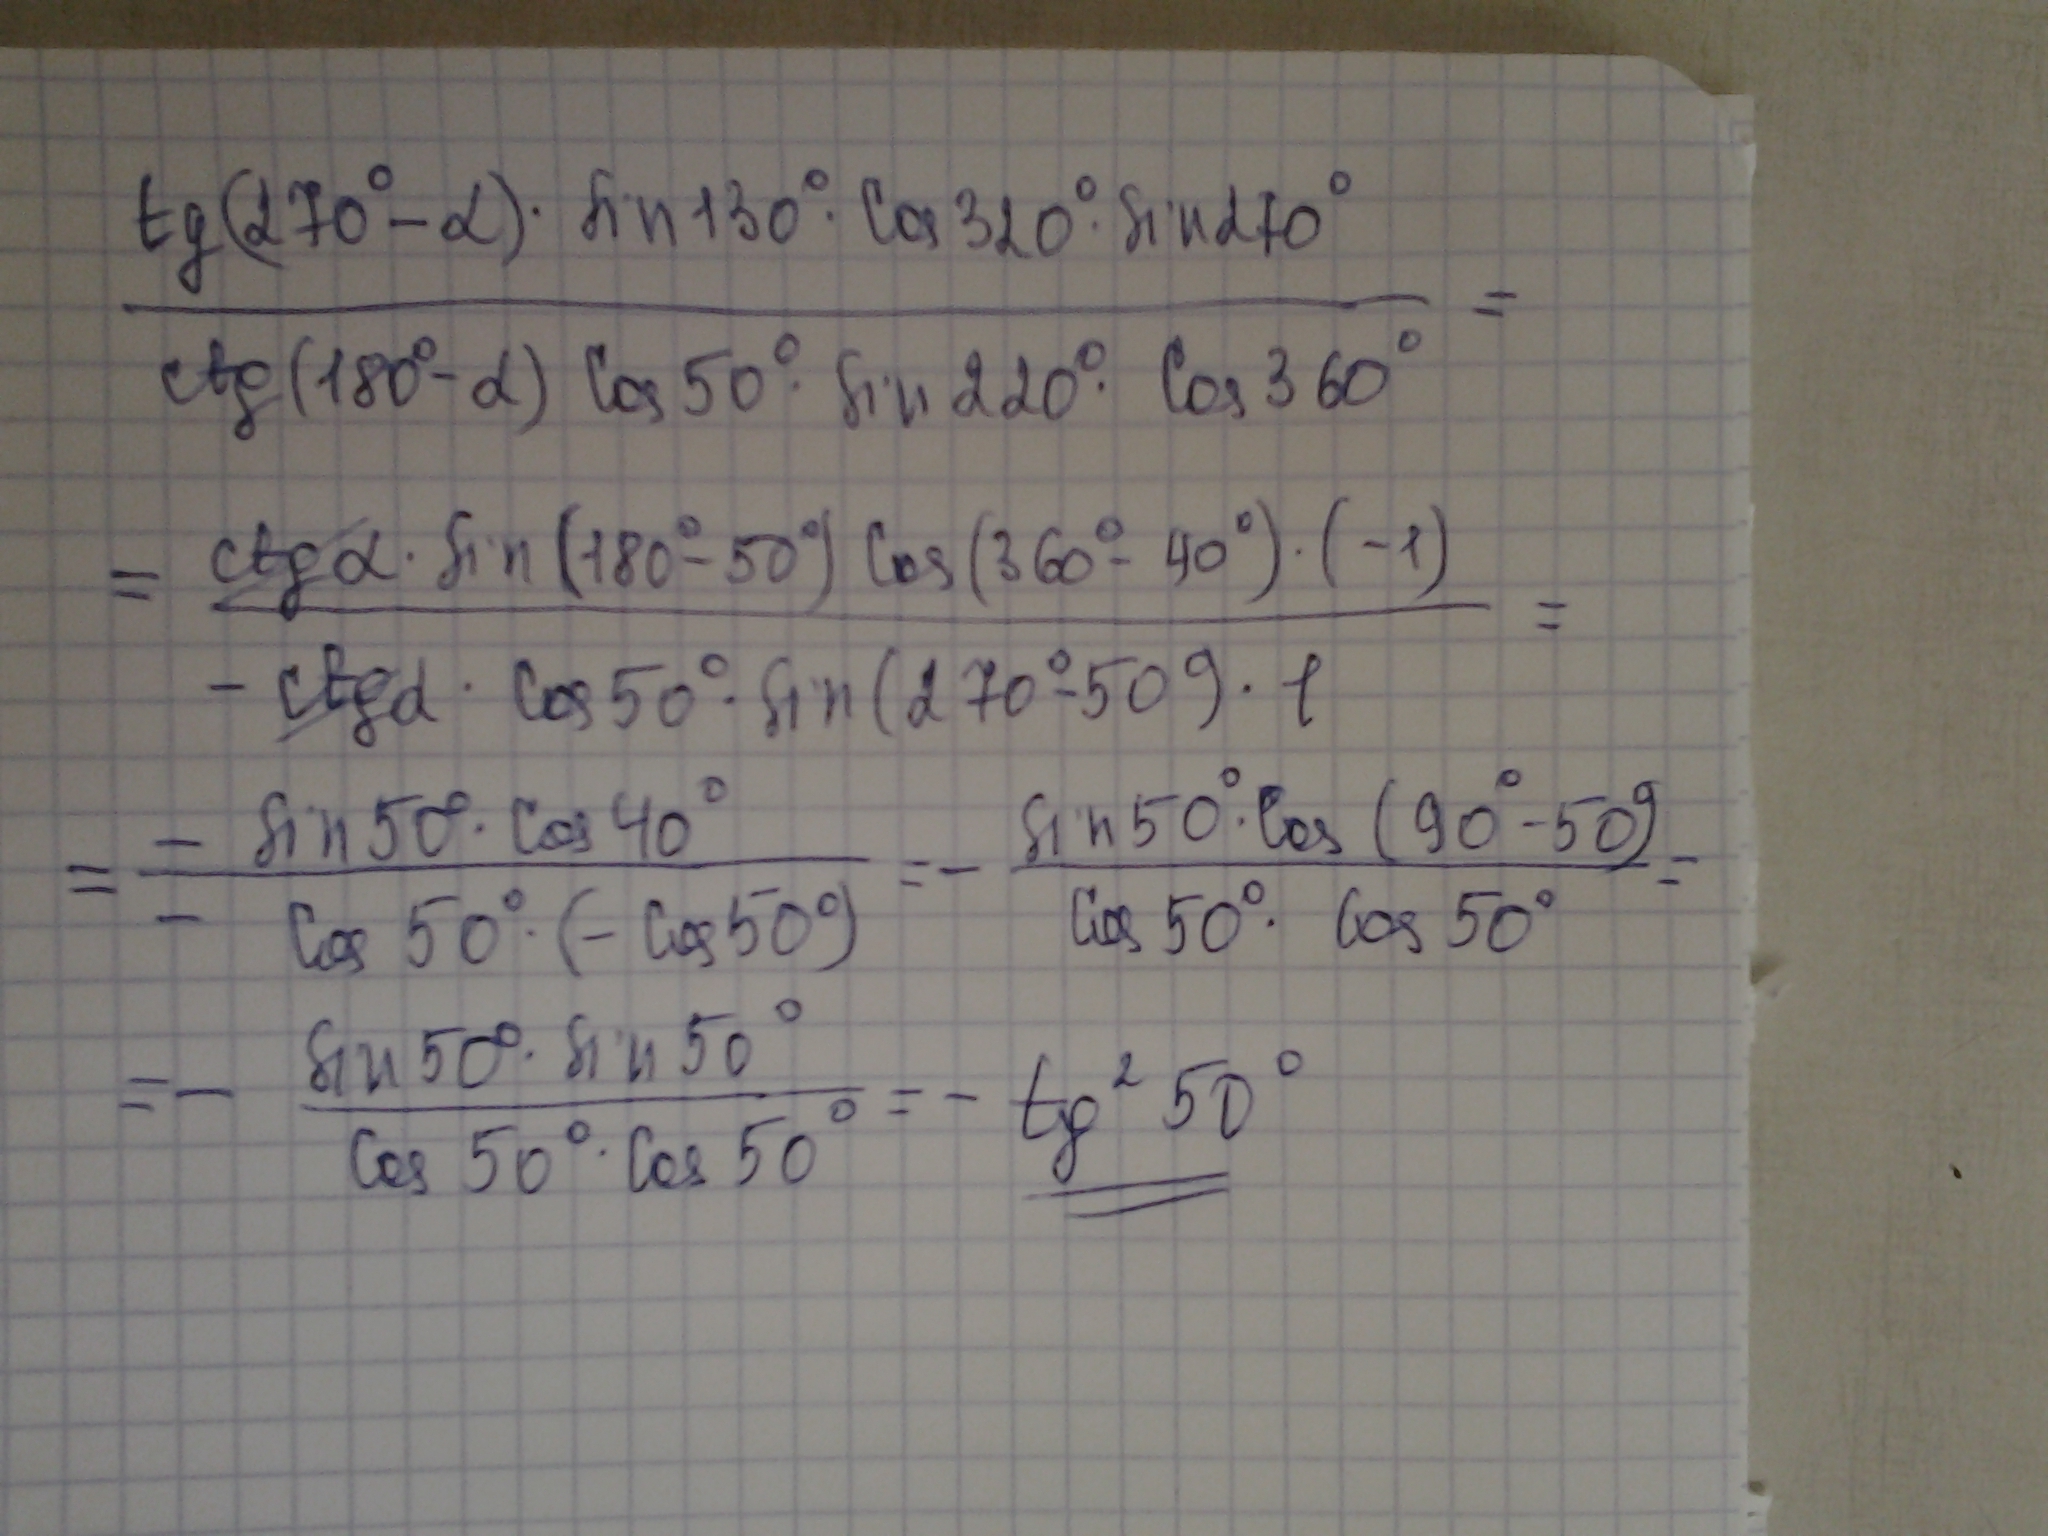 tg(270°-α)· sin130°· cos320°· sin270°
=
ctg(180°-α) cos50°· sin220°· cos360°
ctgα· sin(180°-50°) cos(360°-40°)·(-1)
= =
- ctgα· cos50°· sin(270°-50°)· 1
- sin50°· cos40° sin50°·cos(90°-50°)
= =- =
- cos50°·(-cos50°) cos50°· cos50°
sin50°· sin50°
=- =- tg² 50°
cos50°·cos50°